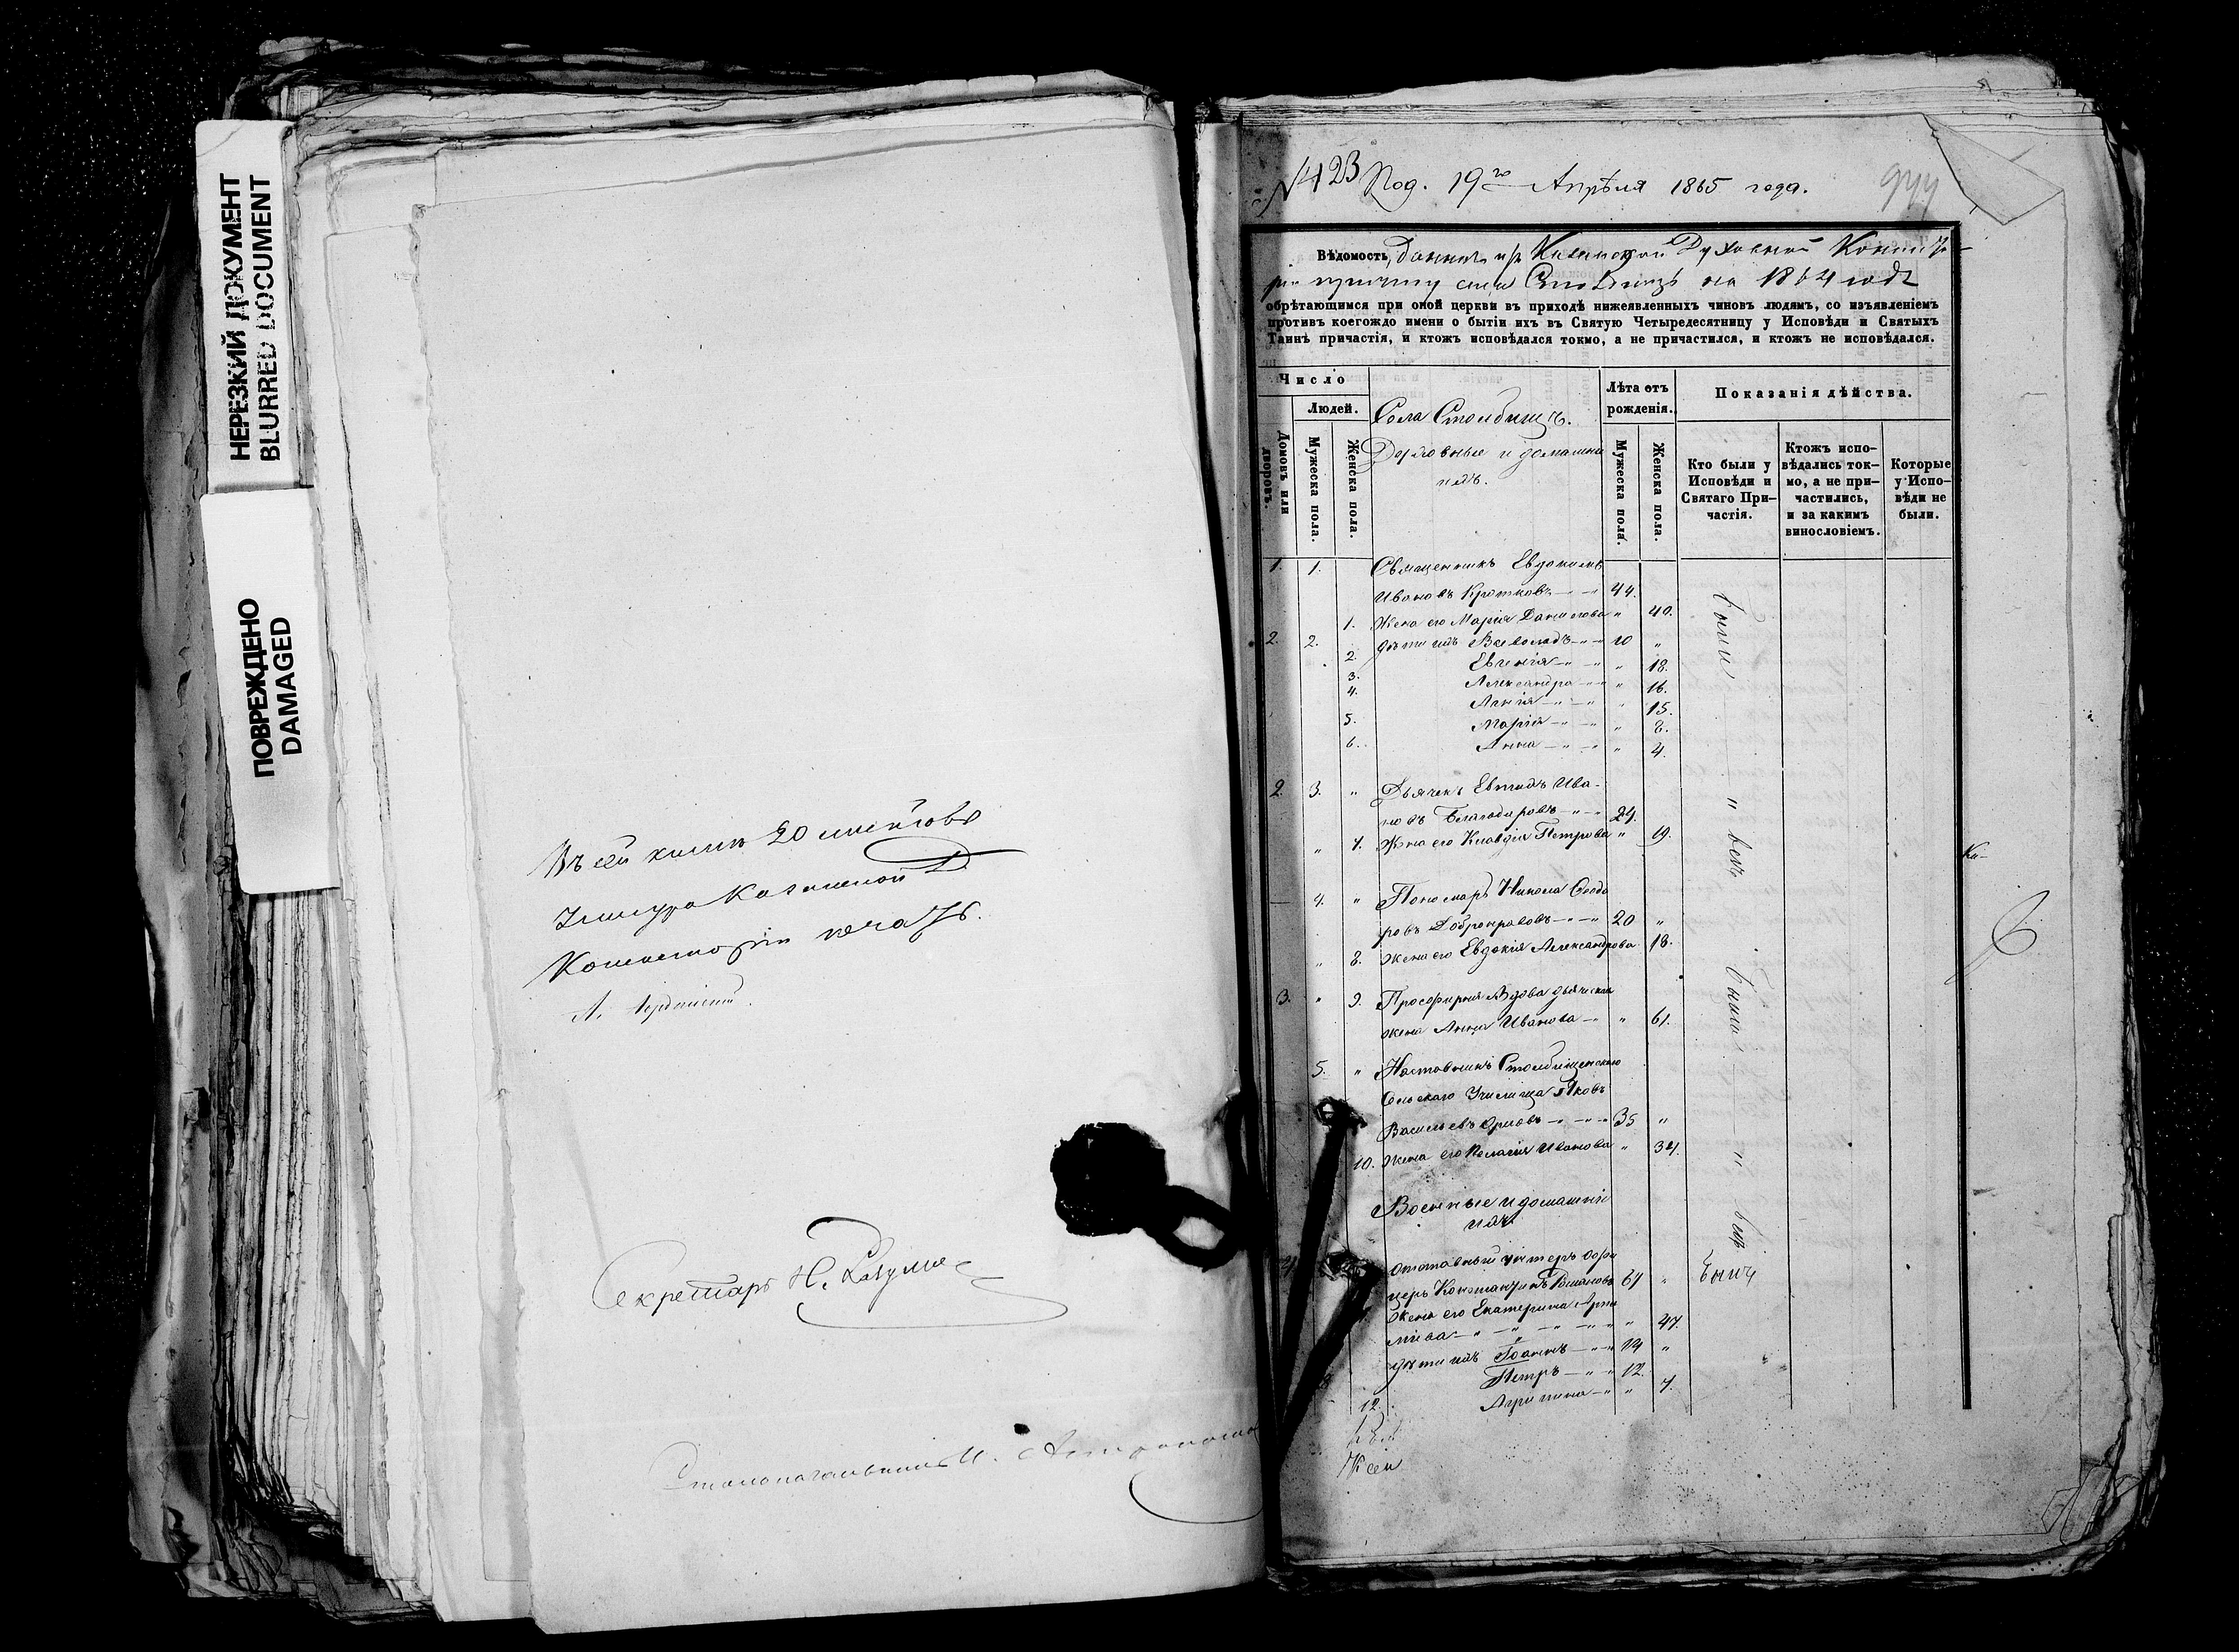 НЕРЕЗКИЙ ДОКУМЕНТ
BLURRED DOCUMENT
ПОВРЕЖДЕНО
DAMAGED
Въ сей книгѣ 20 листовъ
Казанской Д.
Консисторіи печать.
Секретарь Н.
Столоначальникъ И.
№ 423 Под. 19го Апрѣля 1865 года.
Вѣдомость, данная изъ Казанской Духовной Консисто-
ріи причту села Столбищъ на 1864 годъ
обрѣтающимся при оной церкви въ приходѣ нижеявленныхъ чиновъ людямъ, со изъявленіемъ
противъ коегождо имени о бытіи ихъ въ Святую Четыредесятницу у Исповѣди и Святыхъ
Таинъ причастія, и ктожъ исповѣдался токмо, а не причастился, и ктожъ не исповѣдался.
Число
Людей.
Домовъ или дворовъ.
Мужеска пола.
Женска пола.
Села Столбищъ.
Духовные и домашніе
ихъ.
Лѣта отъ
рожденія.
Мужеска пола.
Женска пола.
Показанія дѣйства.
Кто были у
Исповѣди и
Святаго При-
частія.
Ктожъ испо-
вѣдались ток-
мо, а не при-
частились,
и за какимъ
винословіемъ.
Которые
у Испо-
вѣди не
были.
1. 1. Священникъ Евдокимъ
Ивановъ Кротковъ 44.
1. Жена его Марія Данилова " 40.
2. 2. дѣти ихъ Всеволодъ 10 "
2. Евгенія " 18.
3. Александра " 16.
4. " 15.
5. Марія " 8.
6. Анна " 4.
были
2. 3. " Дьячекъ Ива-
новъ Благодаровъ 24.
" 7. Жена его Клавдія Петрова " 19.
4. " Пономарь Никола Ѳеодо
ровъ Добронравовъ 20 "
" 8. Жена его Евдокія Александрова 18.
" всѣ
3. " 9. Просфирня Вдова дьяческая
жена Анна Иванова " 61.
5. " Наставникъ Столбищенскаго
Сельскаго Училища Яковъ
Васильевъ Орловъ 35 "
10. Жена его Пелагія Иванова " 34.
Были " всѣ
Военные и домашніе
ихъ
Отставный унтеръ офи
церъ Константинъ Романовъ 61 " Былъ
Жена его Екатерина Арте
міева " 47.
дѣти ихъ Іоаннъ 19 "
8 Петръ 12.
12. Агрипина " 7.